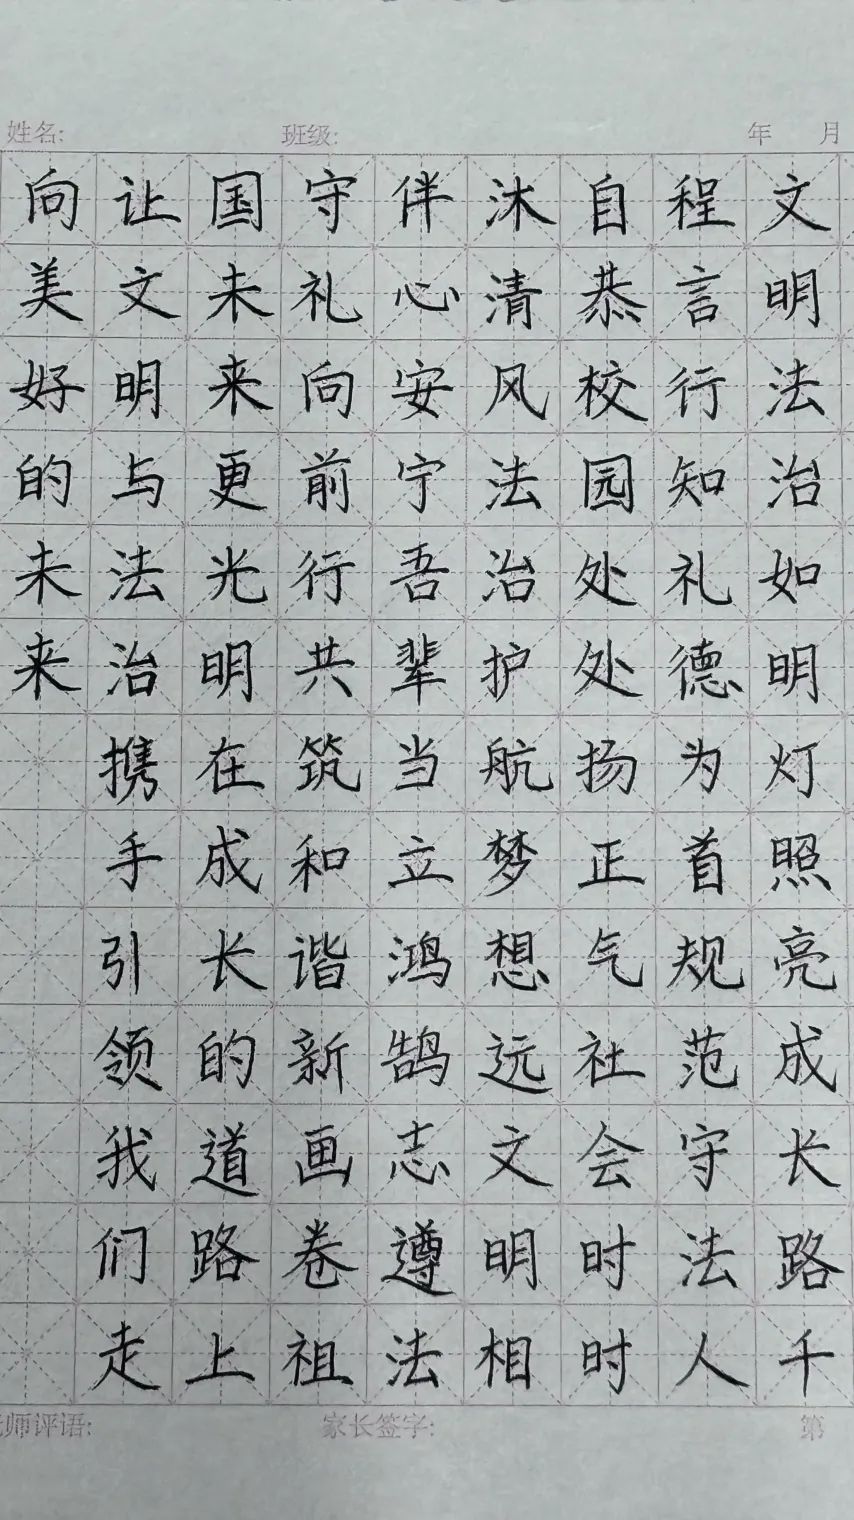 姓名:
班级:
年 月
文明法治如明灯照亮成长路千
程言行知礼德为首规范守法人
自恭校园处处扬正气社会时时
沐清风法治护航梦想远文明相
伴心安宁吾辈当立鸿鹄志遵法
守礼向前行共筑和谐新画卷祖
国未来更光明在成长的道路上
让文明与法治携手引领我们走
向美好的未来
师评语:
家长签字:
第